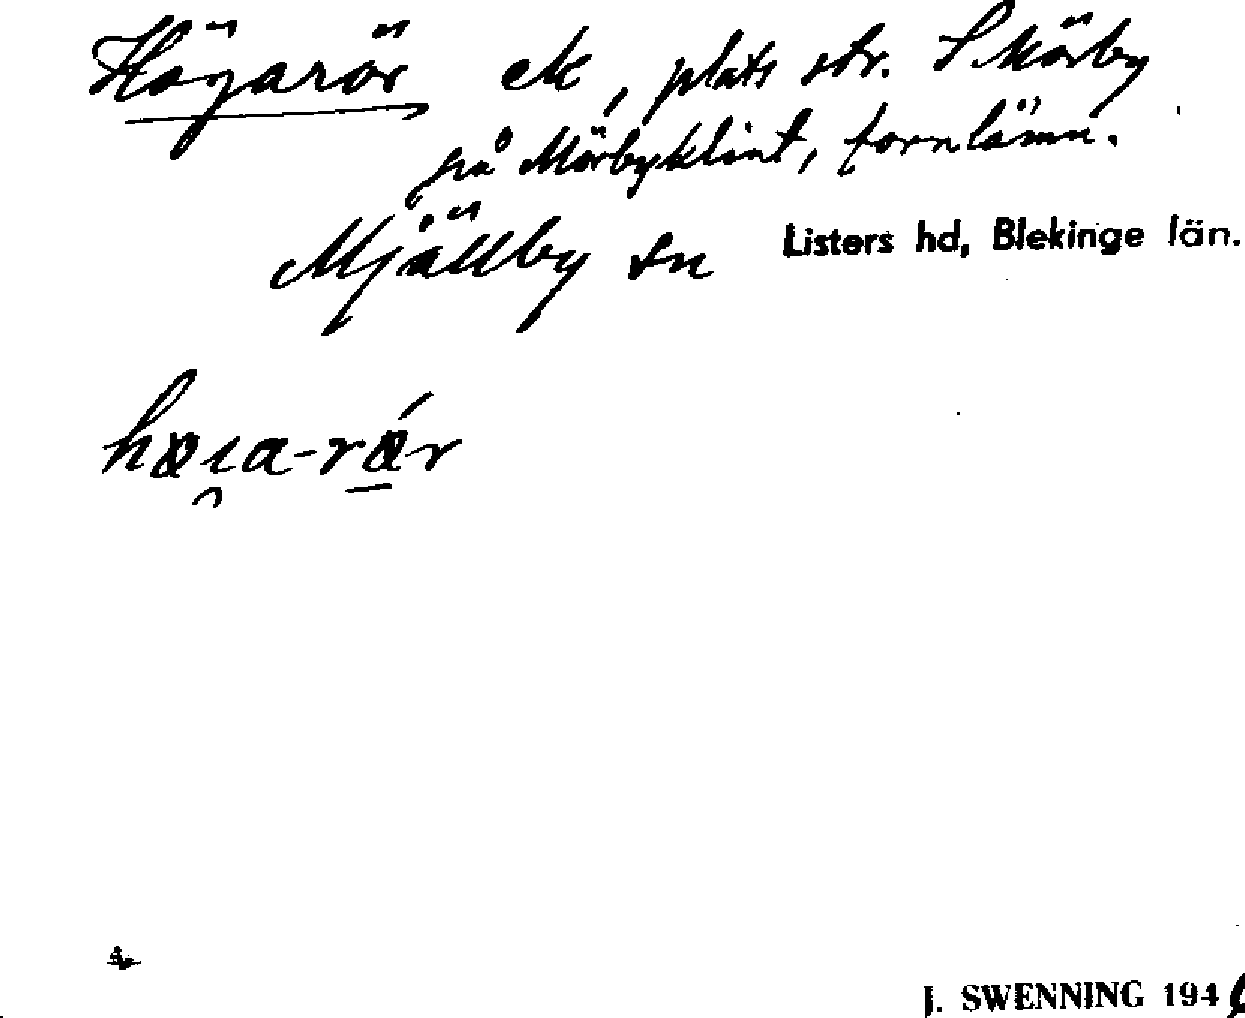 Högarör ek, plats str. S Mörby
på Mörbyklint, fornlämn.
Mjällby sn Listers hd, Blekinge län.
høi̯a-rǿ̠r
J. SWENNING 194